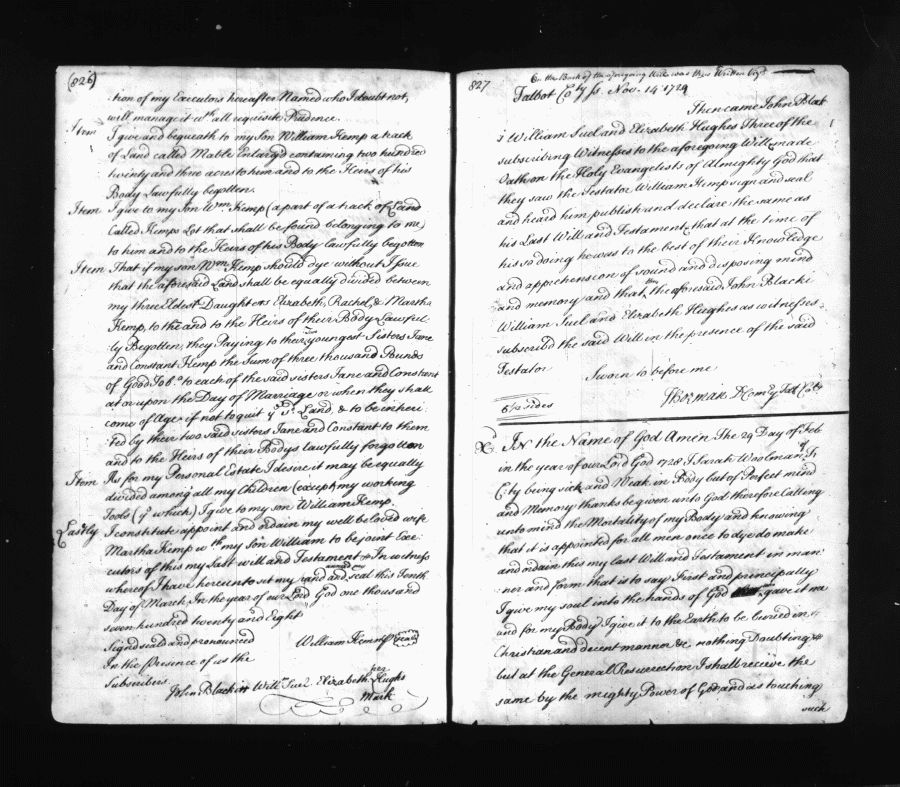 (826)
tion of my Executors hereafter Named who I doubt not,
will manage it wth all requisite Prudence.
Item I give and bequeath to my Son William Kemp a track
of Land called Mable Enlarg'd containing two hundred
twenty and three acres to him and to the Heirs of his
Body Lawfully begotten.
Item I give to my Son Wm. Kemp (a part of a track of Land
Called Kemps Lot that shall be found belonging to me)
to him and to the Heirs of his Body lawfully begotton
Item That if my son Wm Kemp should dye without Issue
that the aforesaid Land shall be equally divided between
my three Eldest Daughters Elizabeth, Rachel, & Martha
Kemp, to them and to the Heirs of their Body Lawful
ly Begotten; they Paying to their youngest Sisters Jane
and Constant Kemp the Sum of three thousand Pounds
of Good Tobo. to each of the said sisters Jane and Constant
at or upon the Day of Marriage or when they shall
come of Age: if not to quit ye sd. Land, & to be inheri
ted by their two said sisters Jane and Constant to them
and to the Heirs of their Bodys lawfully forgotton
Item As for my Personal Estate I desire it may be equally
divided among all my Children (except my working
Tools (ye which) I give to my son William Kemp
Lastly I constitute appoint and ordain my well beloved wife
Martha Kemp wth my Son William to be joint Exe
cutors of this my Last will and Testament In witness
whereof I have hereunto set my hand and seal this Tenth
Day of March In the year of our Lord God one thousand
seven hundred twenty and Eight
Signd seald and pronounced William Kemp Seal
In the Presence of us the
Subscribers her
John Blackitt Willm Suel Elizabeth Hughs
Mark
827 On the Back of the aforegoing Will was thus Written Vizt
Talbot Coty ss. Nov. 14 1729
Then came John Blak
i William Suel and Elizabeth Hughes Three of the
subscribing Witnesses to the aforegoing Will & made
Oath on the Holy Evangelists of Almighty God that
they saw the Testator William Kemp sign and seal
and heard him publish and declare the same as
his Last Will and Testament, that at the time of
his so doing he was to the best of their Knowledge
and apprehension of sound and disposing mind
and memory and that, the aforesaid John Blacki
William Suel and Elizabeth Hughes as witnesses
subscrib'd the said Will in the presence of the said
Testator Sworn to before me
sides
In the Name of God Amen The 29 Day of Feb
in the year of our Lord God 1728 I Sarah Woolman
Coty being sick and Weak in Body but of Perfect mind
and Memory thanks be given unto God therefore Calling
unto mind the Mortality of my Body and knowing
that it is appointed for all men once to dye do make
and ordain this my last Will and Testament in man
ner and form that is to say First and principally
I give my soul into the hands of God gave it me
and for my Body I give it to the Earth to be buried in
Christian and decent manner &c nothing Doubting
but at the General Resurrection I shall receive the
same by the mighty Power of God, and as touching
such